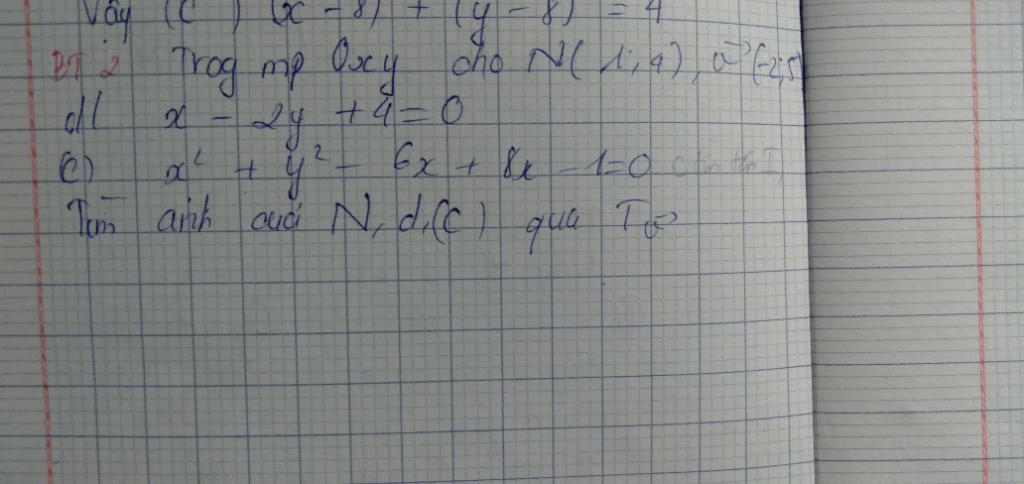 Vậy (C ) (x - 8) + (y - 8) = 4
BT 2 Trog mp Oxy cho N( 1; 4), v→(-2;5)
d( x - 2y + 4 = 0
C) x² + y² - 6x + 8x - 1 = 0
Tìm ảnh của N, d, (C) qua T v→